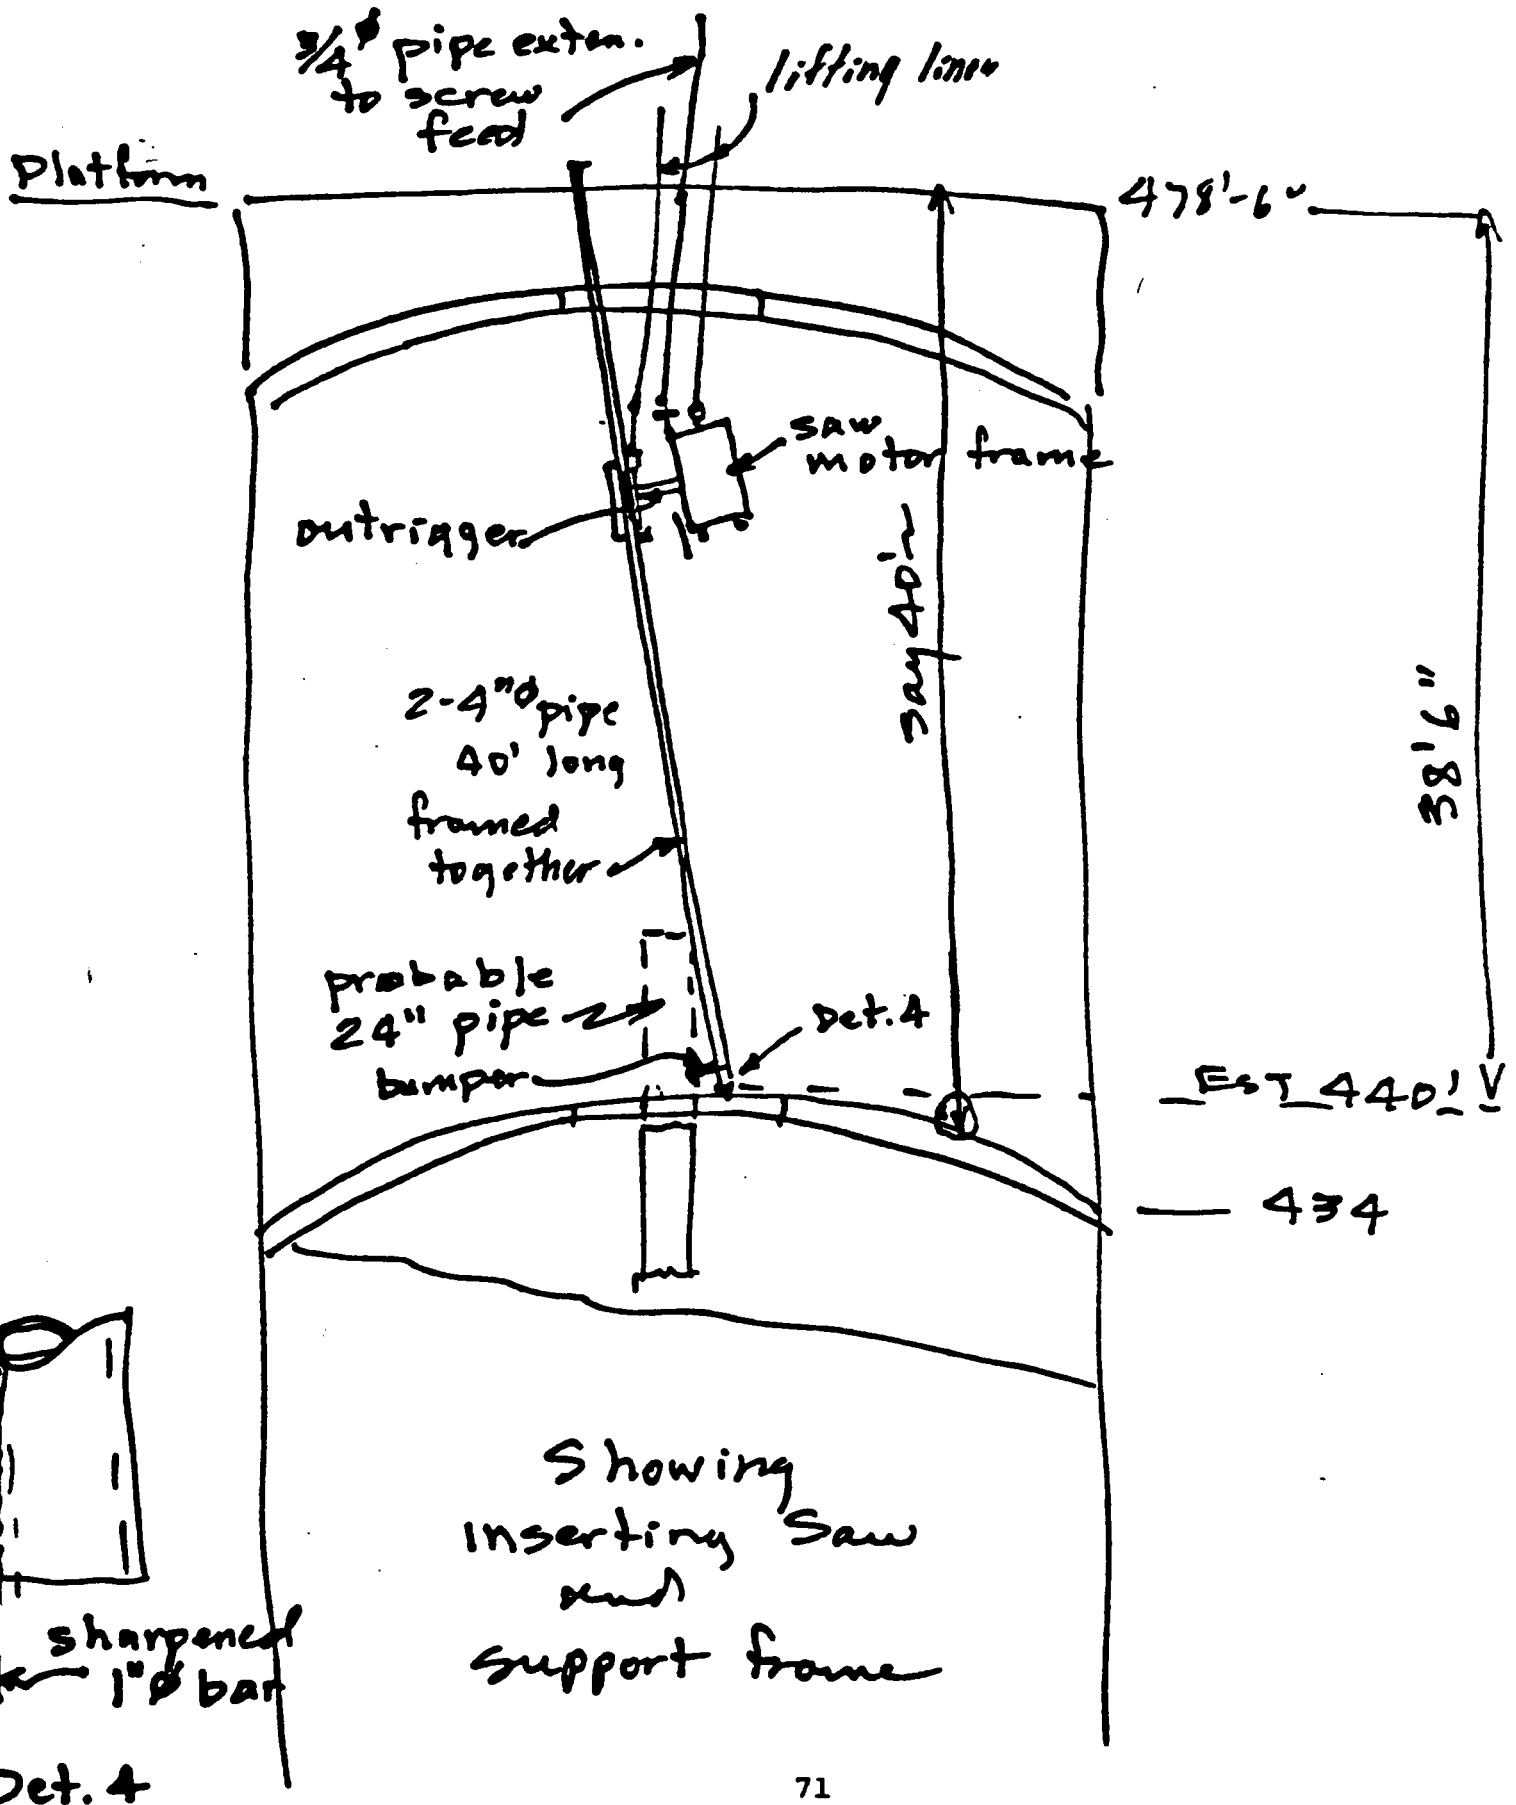 3/4 ø pipe exten.
to screw
feed
lifting lines
Platform
478'-6"
saw
motor frame
outrigger
say 40'~
2-4"ø pipe
40' long
framed
together
38'6"
probable
24" pipe
bumper
Det. 4
EST 440'
434
Showing
inserting Saw
and
support frame
sharpened
1"ø bar
Det. 4
71